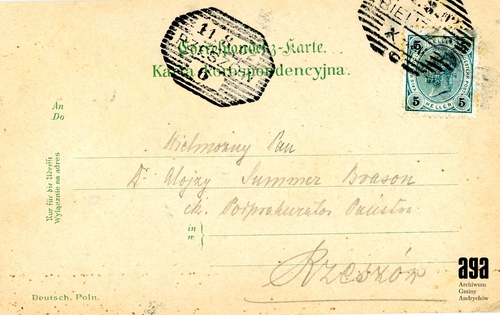 Correspondenz-Karte.
Karta Korespondencyjna.
11 8
RZESZÓW
BIELI
5 HELLER 5
An
Do
Nur für die Adresse
Wyłącznie na adres
Wielmożny Pan
Dr Alojzy Summer Brason
ck. Podprokurator Państwa
in
w
Rzeszów
Deutsch. Poln.
aga
Archiwum
Gminy
Andrychów